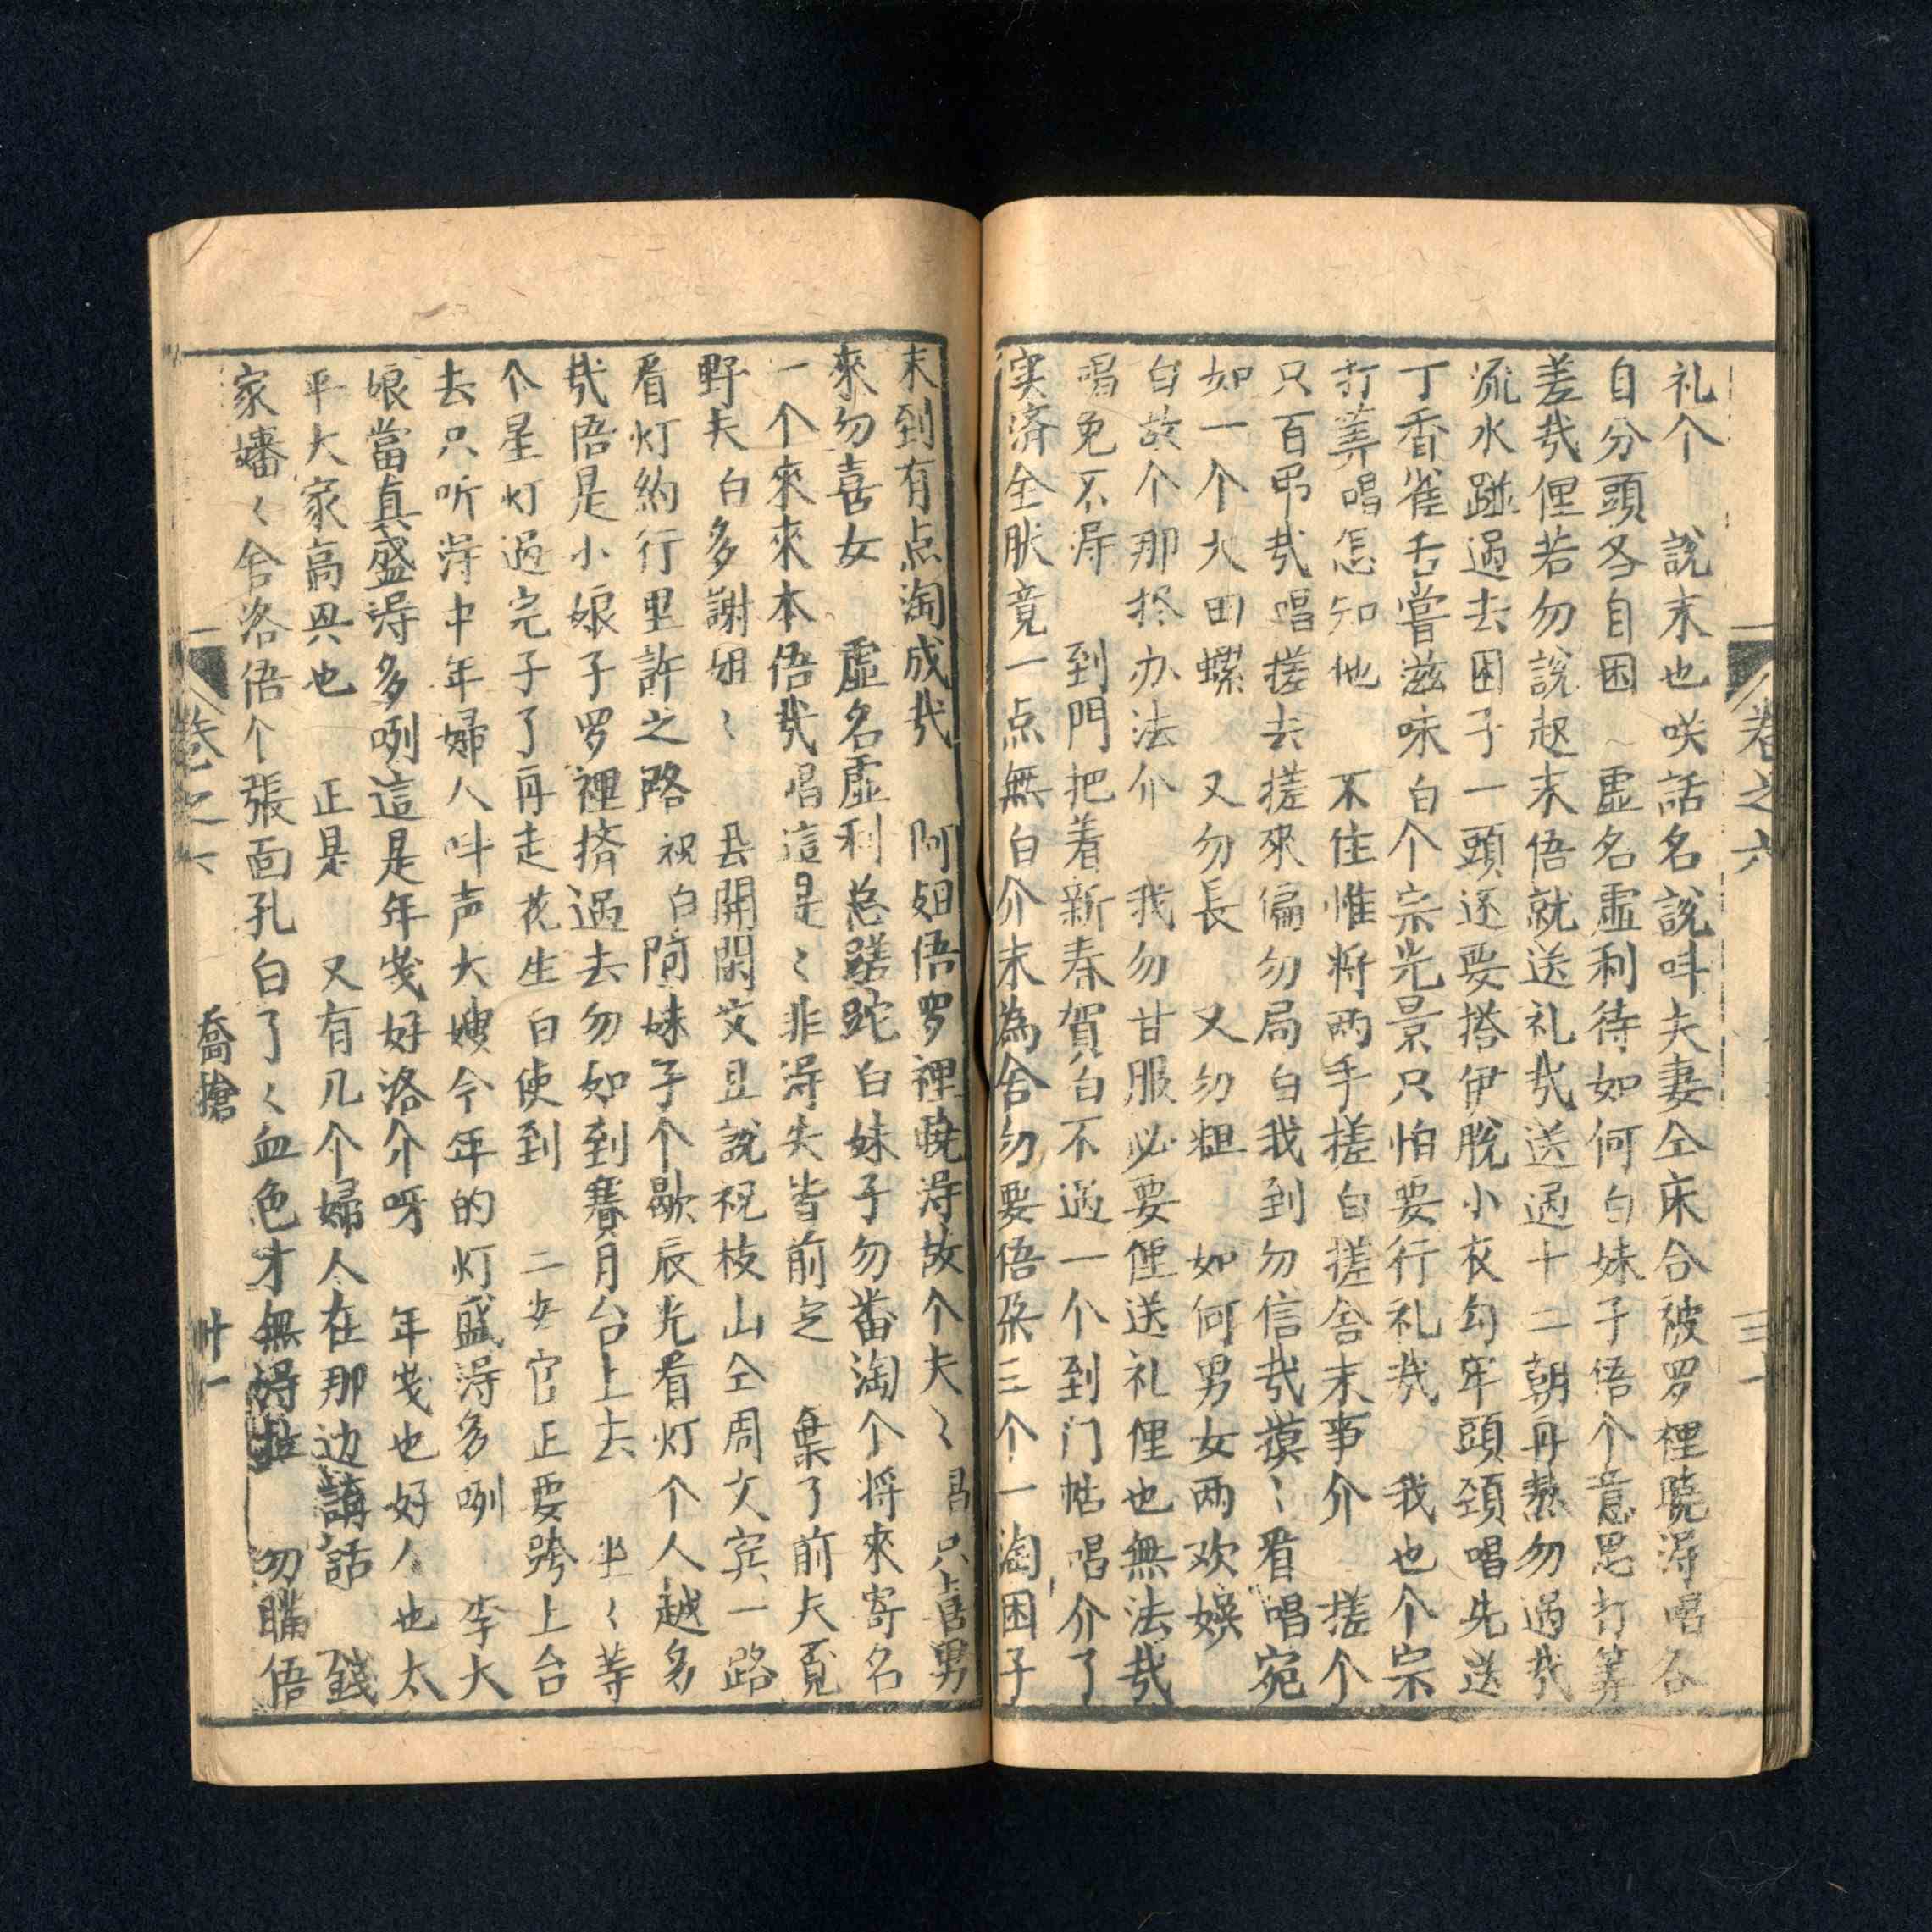 卷之六
三十
礼个 説末也咲話名説呌夫妻仝床合被罗裡曉淂唱各
自分頭各自困 虚名虚利待如何白妹子悟个意思打筭
差㢤俚若勿説起末悟就送礼㢤送過十二朝再熬勿過㢤
流水跳過去困子一頭还要搭伊脫小衣勾牢頭頚唱先送
丁香雀舌嘗滋味白个宗光景只怕要行礼㢤 我也个宗
打筭唱怎知他 不住惟将兩手搓白搓舎末事介 搓个
只百弔㢤唱搓去搓來偏勿局白我到勿信㢤摸〻看唱宛
如一个大田螺 又勿長 又勿粗 如何男女两欢娱
白故个那捴办法介 我勿甘服必要俚送礼俚也無法㢤
唱免不淂 到門把着新春賀白不過一个到门帖唱介了
实済全肰竟一点無白介末為舎勿要悟朶三个一淘困子
末到有点淘成㢤 阿姐悟罗裡曉淂故个夫〻唱只喜男
來勿喜女 虚名虚利总蹉跎白妹子勿畨淘个将來寄名
一个來來本悟㢤唱這是〻非淂失皆前定 棄了前夫覔
野夫白多謝姐〻 丟開閑文且説祝枝山仝周文宾一路
看灯約行里許之路祝白阿妹子个歇辰光看灯个人越多
㢤悟是小娘子罗裡擠過去勿如到賽月台上去 坐〻等
个星灯過完子了再走花生白使到 二女它正要跨上台
去只听淂中年婦人呌声大嫂今年的灯盛淂多咧 李大
娘當真盛淂多咧這是年歲好洛介呀 年歲也好人也太
平大家高興也 正是 又有几个婦人在那边講話 錢
家嬸〻舎洛悟个張面孔白了〻血色才無淂拉 勿瞞悟
卷之六
喬搶
卅一